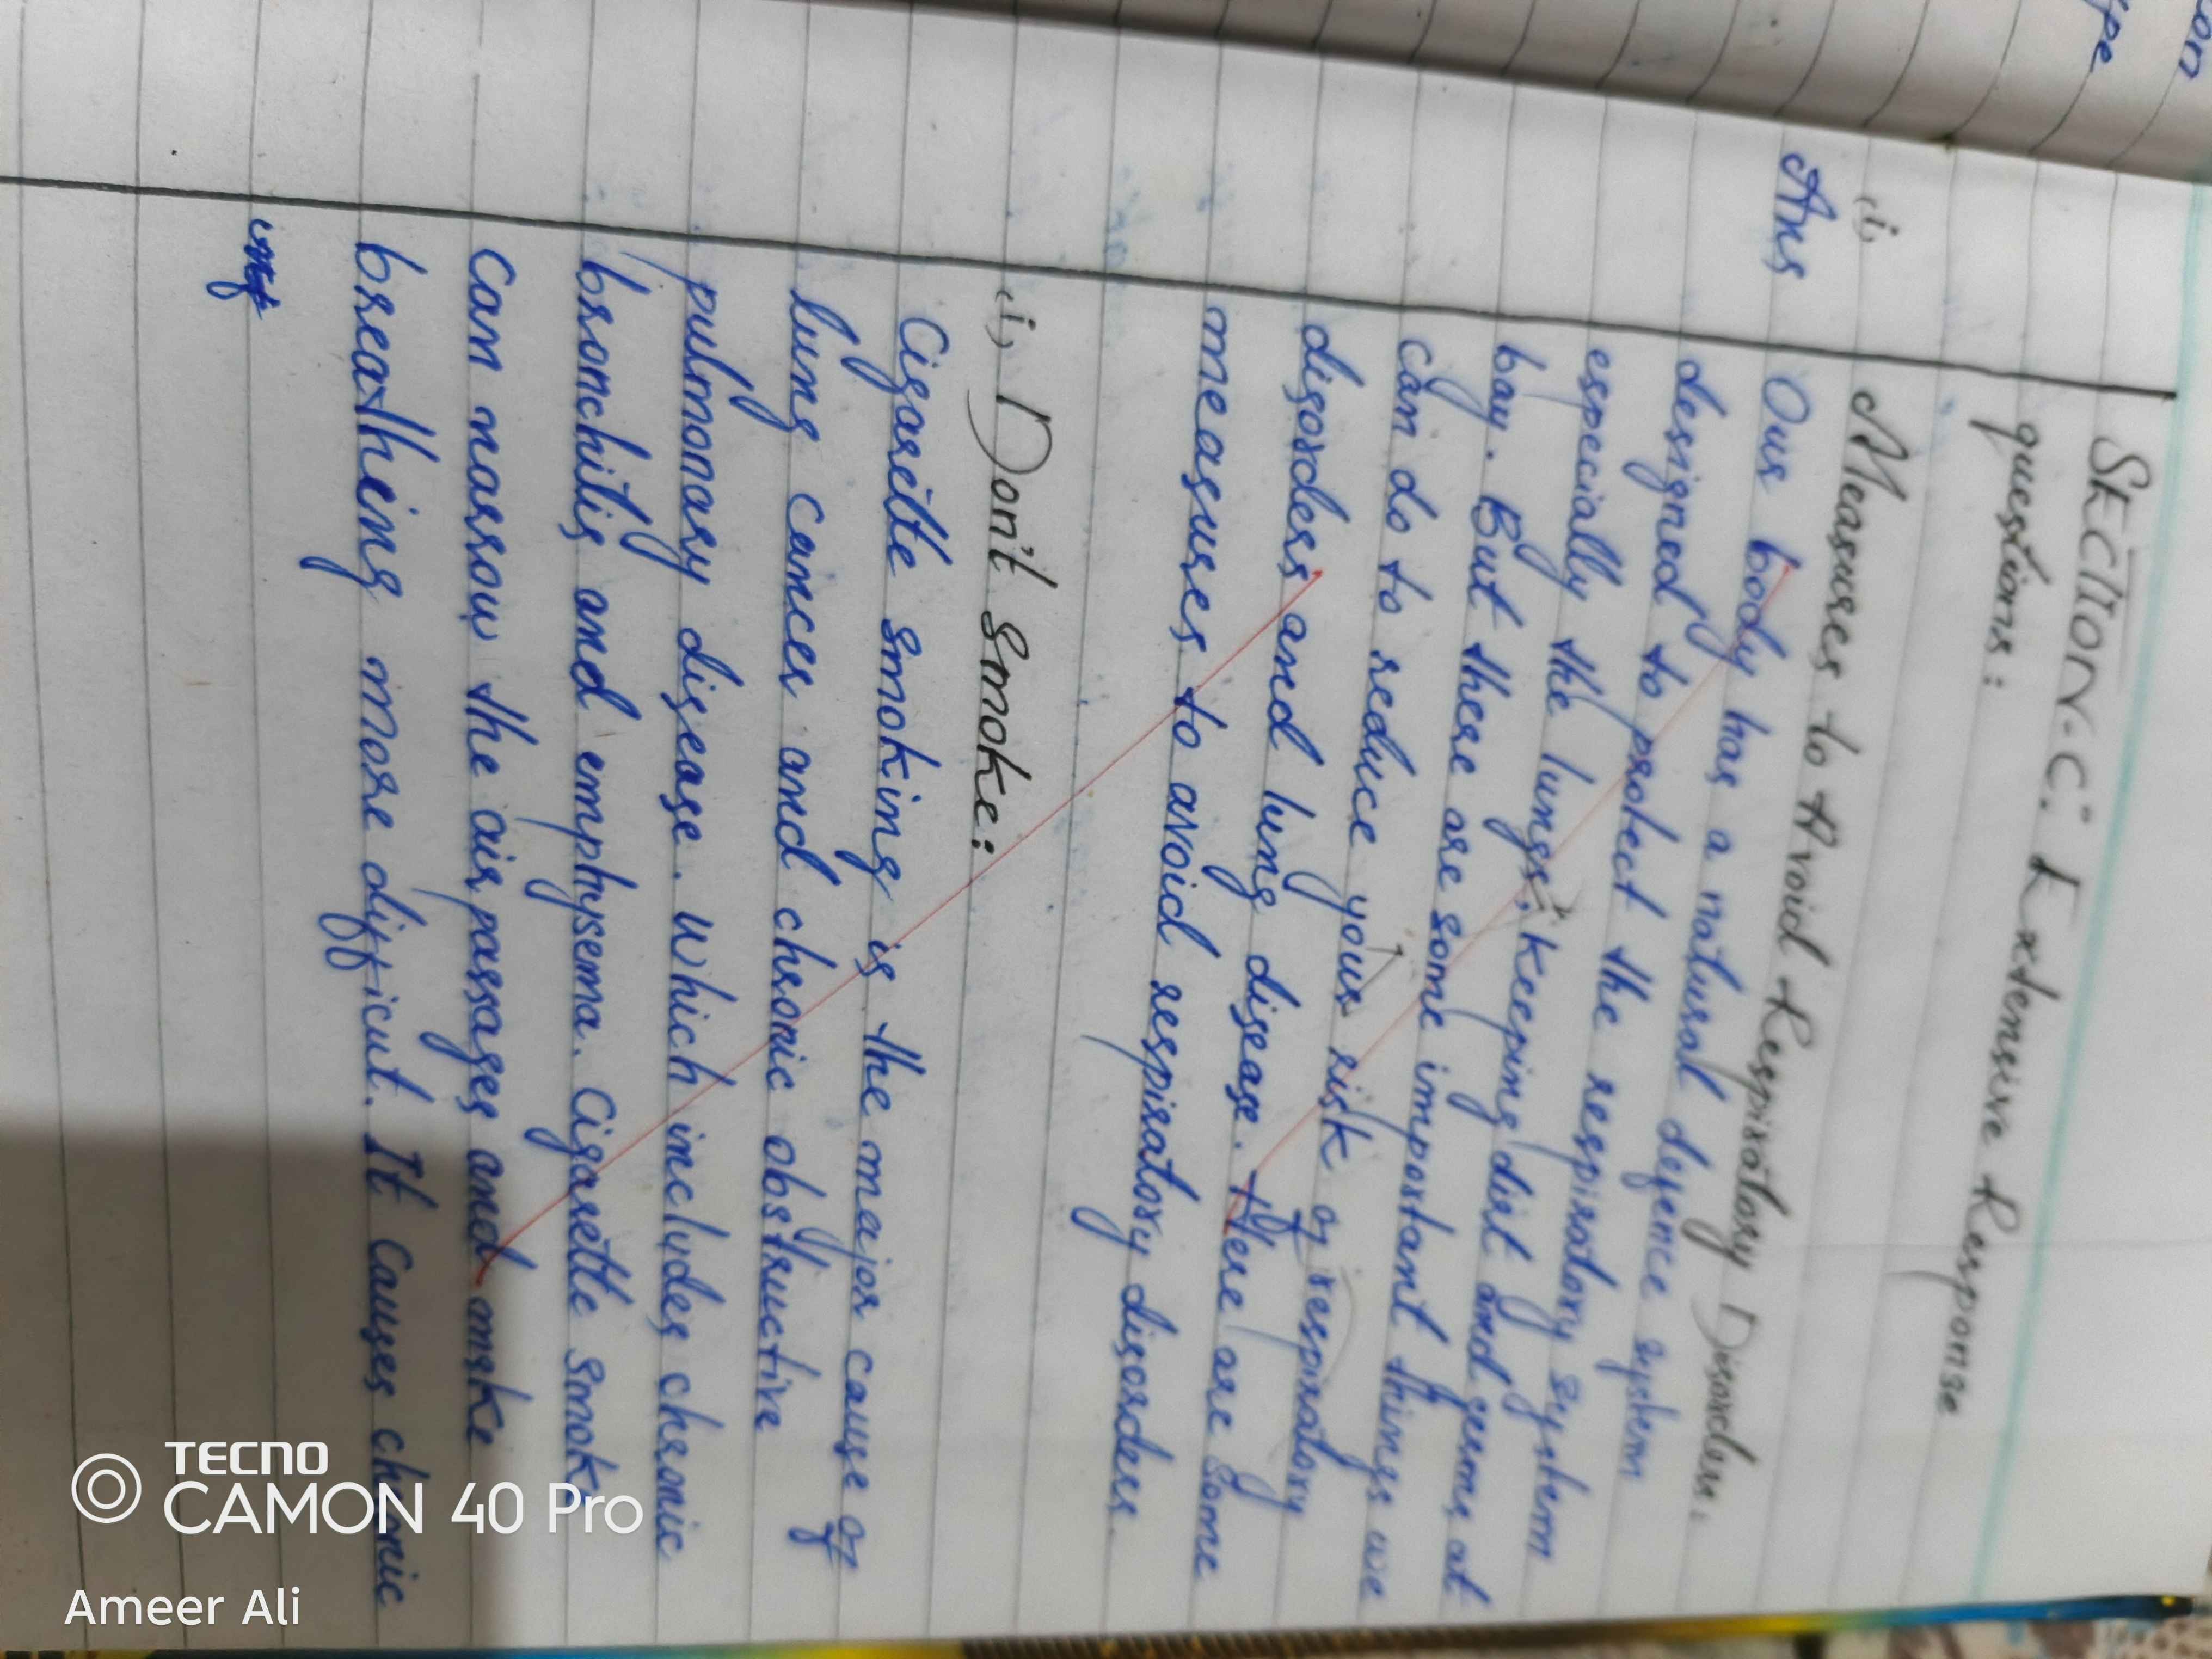 on
pe
SECTION-C: Extensive Response
questions:
(i) Measures to Avoid Respiratory Disorders.
Ans Our body has a natural defence system
designed to protect the respiratory system
especially the lungs, Keeping dirt and germs at
bay. But there are some important things we
can do to reduce your risk of respiratory
disorders and lung disease. Here are some
measures to avoid respiratory disorders.
(i) Don't Smoke:
Cigarette smoking is the major cause of
lung cancer and chronic obstructive
pulmonary disease. Which includes chronic
bronchitis and emphysema. Cigarette smoke
can narrow the air passages and make
breathing more difficut. It causes chronic
TECNO
CAMON 40 Pro
Ameer Ali